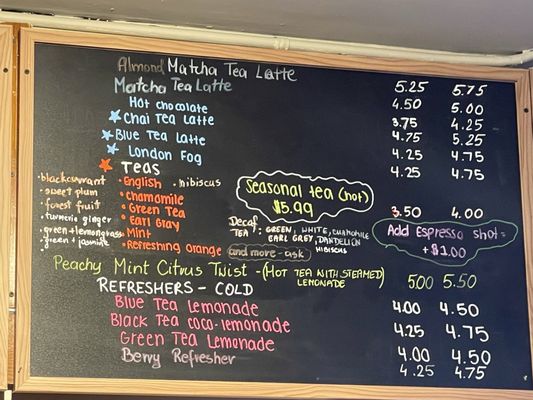 Almond Matcha Tea Latte
Matcha Tea Latte 5.25 5.75
Hot chocolate 4.50 5.00
Chai Tea Latte 3.75 4.25
Blue Tea Latte 4.75 5.25
London Fog 4.25 4.75
4.25 4.75
Teas 3.50 4.00
• blackcurrant
• sweet plum
• forest fruit
• turmeric ginger
• green + lemongrass
• green + jasmine
• English
• Chamomile
• Green Tea
• Earl Gray
• Mint
• Refreshing orange
• hibiscus
Seasonal tea (hot)
$5.99
Decaf
Tea: GREEN, WHITE, CHAMOMILE
EARL GREY, DANDELION
HIBISCUS
and more - ask
Add Espresso shot =
+$1.00
Peachy Mint Citrus Twist - (HOT TEA WITH STEAMED LEMONADE) 5.00 5.50
REFRESHERS - COLD
Blue Tea Lemonade 4.00 4.50
Black Tea coco-lemonade 4.25 4.75
Green Tea Lemonade 4.00 4.50
Berry Refresher 4.25 4.75